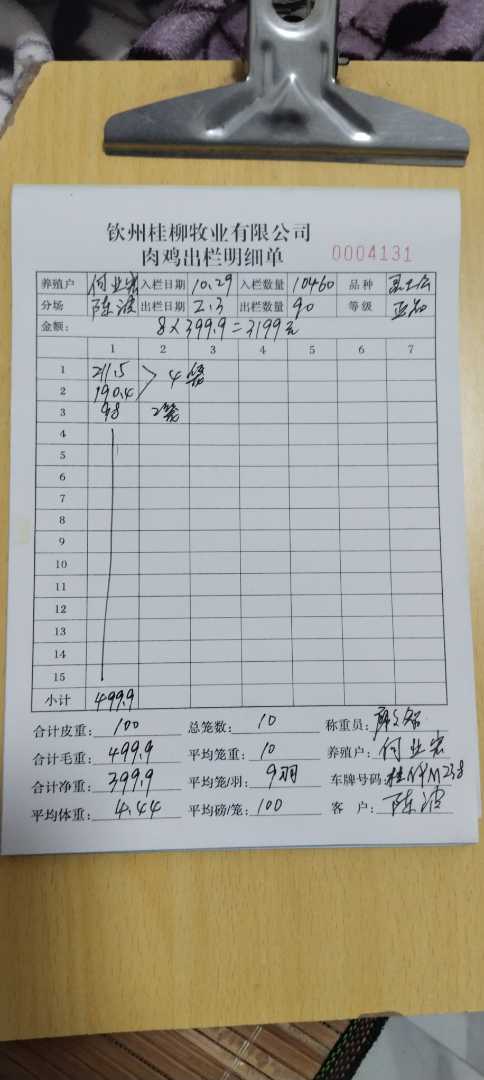 钦州桂柳牧业有限公司
肉鸡出栏明细单 0004131
养殖户 何业宏 入栏日期 10.29 入栏数量 10460 品种
分场 陈波 出栏日期 2.3 出栏数量 90 等级
金额: 8×399.9=3199元
1 2 3 4 5 6 7
1 211.5 4笼
2 190.4
3 98 2笼
4
5
6
7
8
9
10
11
12
13
14
15
小计 499.9
合计皮重: 100 总笼数: 10 称重员:
合计毛重: 499.9 平均笼重: 10 养殖户: 何业宏
合计净重: 399.9 平均笼/羽: 9羽 车牌号码:
平均体重: 4.44 平均磅/笼: 100 客户: 陈波